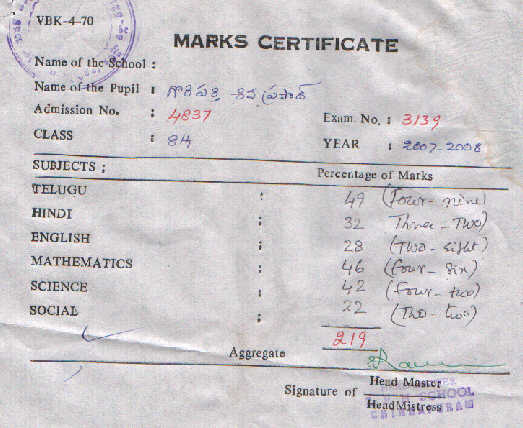 VBK-4-70
MARKS CERTIFICATE
Name of the School :
Name of the Pupil : గొరిపర్తి శివ ప్రసాద్
Admission No. : 4837 Exam No. : 3139
CLASS : 8H YEAR : 2007-2008
SUBJECTS ; Percentage of Marks
TELUGU : 49 (Four-nine)
HINDI ; 32 Three-Two)
ENGLISH : 28 (Two-eight)
MATHEMATICS : 46 (four-six)
SCIENCE : 42 (four-two)
SOCIAL ; 22 (Two-two)
Aggregate 219
Signature of Head Master
HeadMistress
SCHOOL